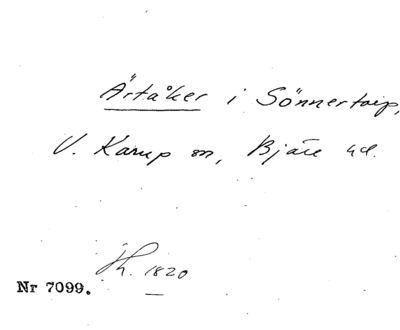 Ärtåker i Sönnertorp,
V. Karup sn, Bjäre hd.
1820
Nr 7099.